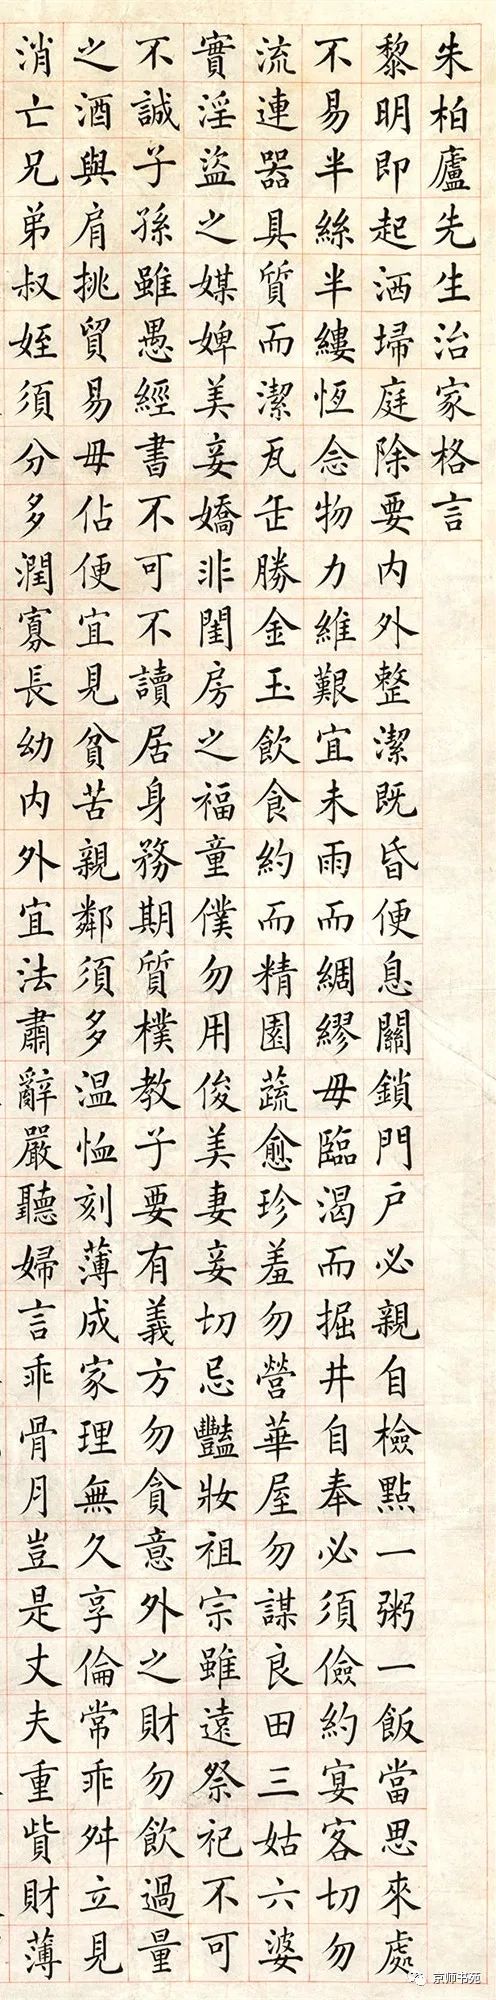 朱柏廬先生治家格言
黎明即起洒埽庭除要内外整潔既昏便息關鎖門戶必親自檢點一粥一飯當思來處
不易半絲半縷恆念物力維艱宜未雨而綢繆毋臨渴而掘井自奉必須儉約宴客切勿
流連器具質而潔瓦缶勝金玉飲食約而精園蔬愈珍羞勿營華屋勿謀良田三姑六婆
實淫盜之媒婢美妾嬌非閨房之福童僕勿用俊美妻妾切忌豔妝祖宗雖遠祭祀不可
不誠子孫雖愚經書不可不讀居身務期質樸教子要有義方勿貪意外之財勿飲過量
之酒與肩挑貿易毋佔便宜見貧苦親鄰須多温恤刻薄成家理無久享倫常乖舛立見
消亡兄弟叔姪須分多潤寡長幼内外宜法肅辭嚴聽婦言乖骨月豈是丈夫重貲財薄
京师书苑